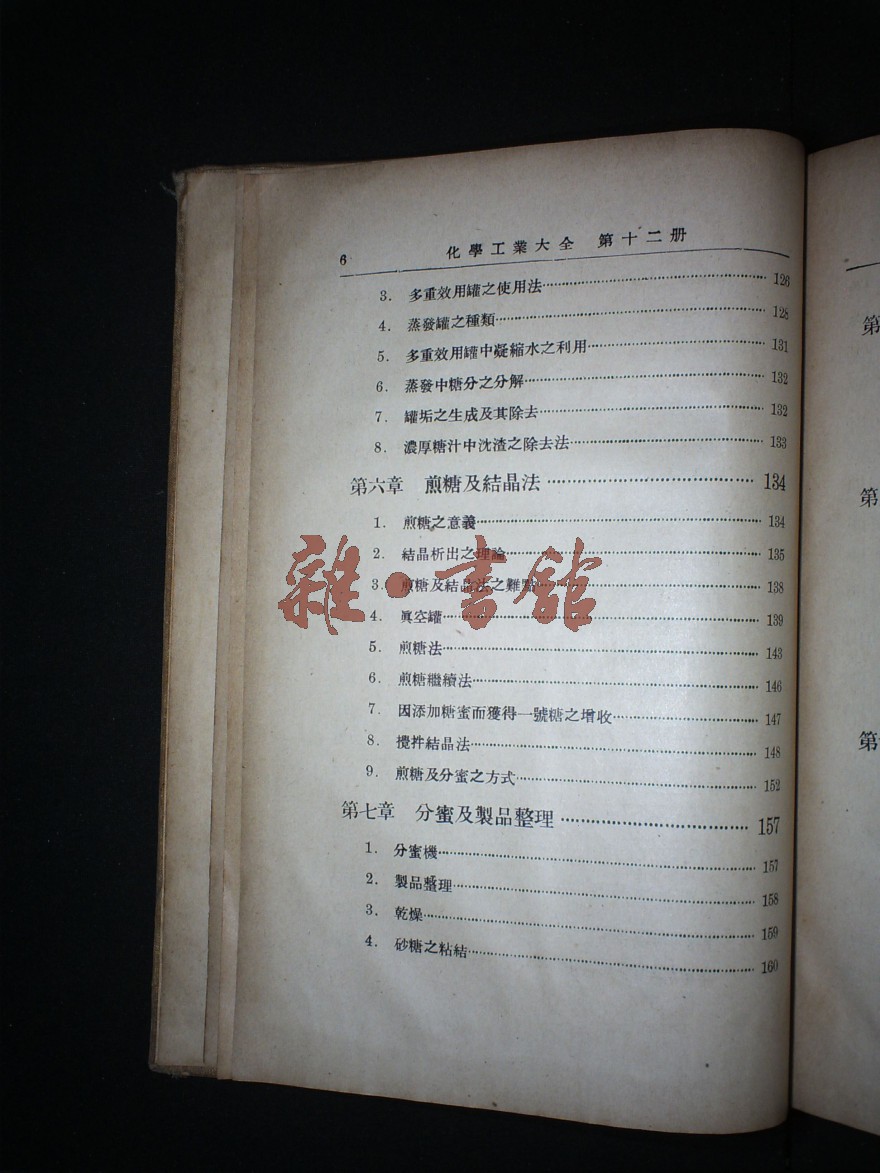 6 化學工業大全 第十二册
3. 多重效用罐之使用法 126
4. 蒸發罐之種類 128
5. 多重效用罐中凝縮水之利用 131
6. 蒸發中糖分之分解 132
7. 罐垢之生成及其除去 132
8. 濃厚糖汁中沈渣之除去法 133
第六章 煎糖及結晶法 134
1. 煎糖之意義 134
2. 結晶析出之理論 135
3. 煎糖及結晶法之難點 138
4. 眞空罐 139
5. 煎糖法 143
6. 煎糖繼續法 146
7. 因添加糖蜜而獲得一號糖之增收 147
8. 攪拌結晶法 148
9. 煎糖及分蜜之方式 152
第七章 分蜜及製品整理 157
1. 分蜜機 157
2. 製品整理 158
3. 乾燥 159
4. 砂糖之粘結 160
雜·書館
第
第
第